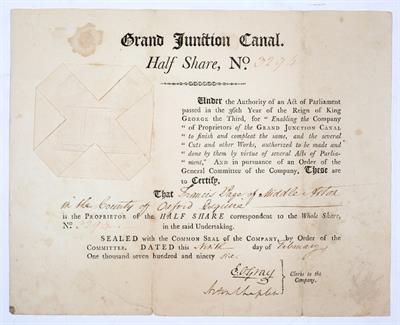 Grand Junction Canal.
Half Share, No 3293
Under the Authority of an Act of Parliament
passed in the 36th Year of the Reign of King
GEORGE the Third, for " Enabling the Company
" of Proprietors of the GRAND JUNCTION CANAL
" to finish and compleat the same, and the several
" Cuts and other Works, authorized to be made and
" done by them by virtue of several Acts of Parlia-
" ment," AND in pursuance of an Order of the
General Committee of the Company, These are
to Certify,
That Francis Page of Middle Aston
in the County of Oxford Esquire
is the PROPRIETOR of the HALF SHARE correspondent to the Whole Share,
No. 3293 in the said Undertaking.
SEALED with the COMMON SEAL of the COMPANY, by Order of the
COMMITTEE, DATED this Ninth day of February
One thousand seven hundred and ninety six.
Gray
Acton Chaplin
Clerks to the
Company.